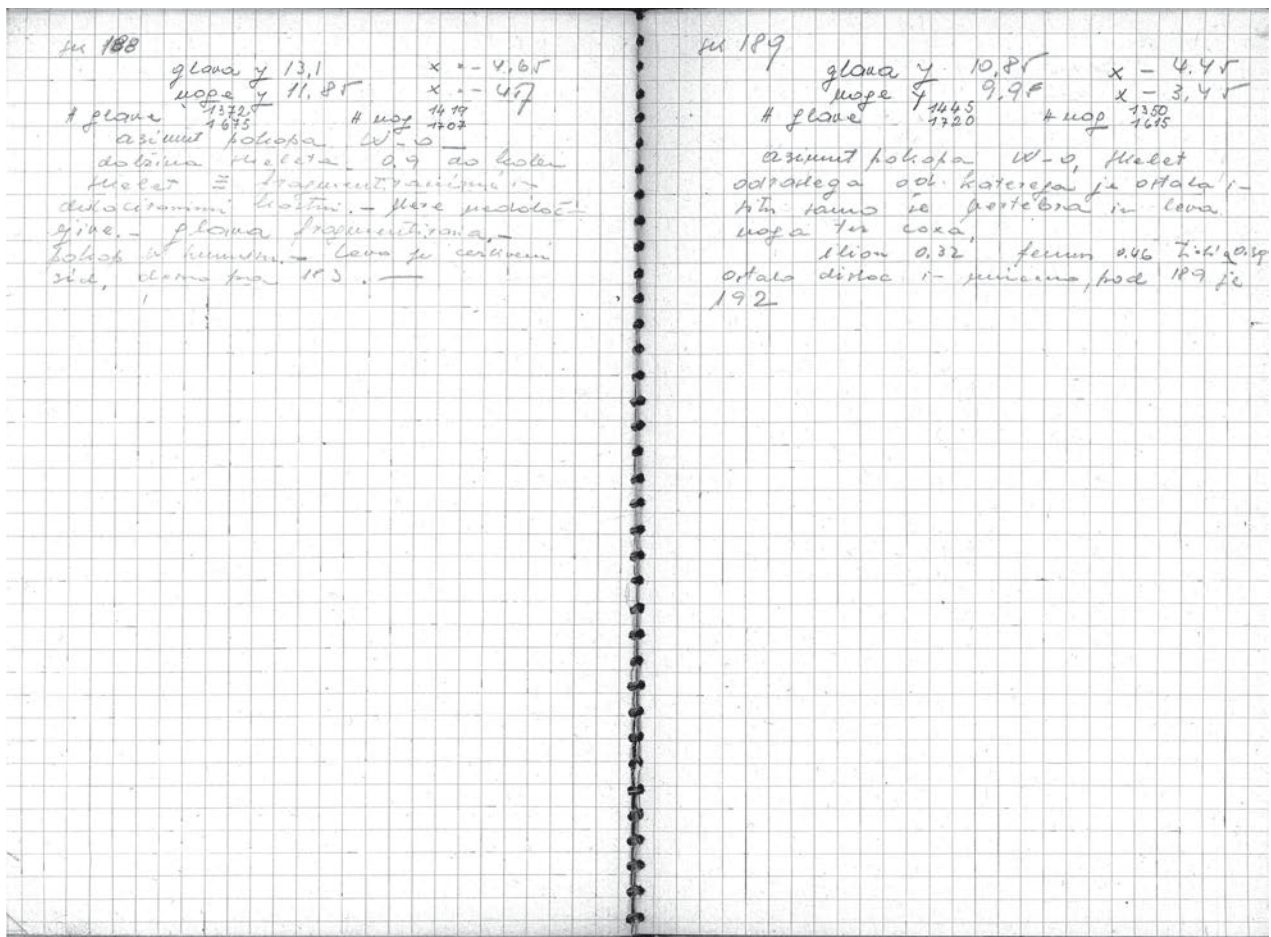 sk 188
glava y 13,1 x = - 4.65
noge y 11.85 x = - 4.7
# glave 1372 # nog 1419
1675 1707
azimut pokopa W-O
dolžina skeleta 0,9 do kolen
skelet z fragmentiranimi in
dislociranimi kostmi. - nedoloč-
ljive. - glava fragmentirana. -
pokop v humusu. - Levo je cerkveni
zid, desno pa 183. —
sk 189
glava y 10,85 x - 4.45
noge y 9,95 x - 3,45
# glave 1445 # nog 1350
1720 1615
azimut pokopa W-O, skelet
odraslega od katerega je ostala in
situ samo še vertebra in leva
noga ter coxa,
ilion 0.32 femur 0.46 tibia 0.39
ostalo disloc in uničeno, pod 189 je
192